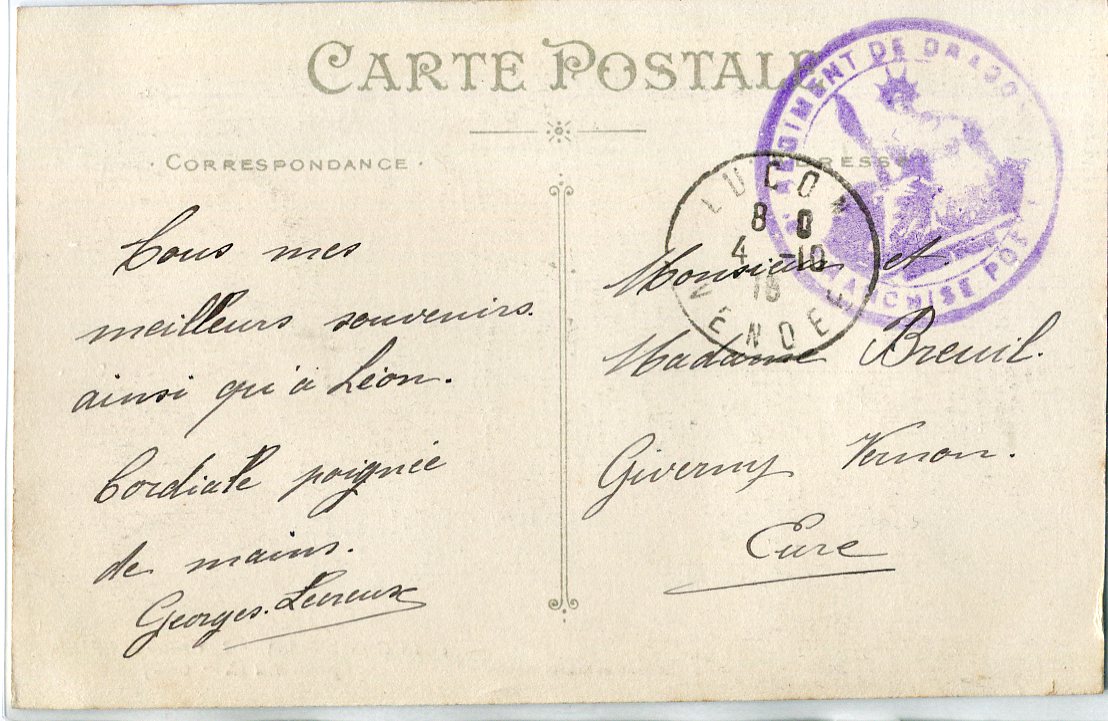 CARTE POSTALE
CORRESPONDANCE
ADRESSE
RÉGIMENT DE DRAGO
FRANCHISE POST
LUÇON
8 0
4 -10
15
VENDÉE
Tous mes
meilleurs souvenirs.
ainsi qu'à Léon.
Cordiale poignée
de mains.
Georges
Monsieur et
Madame Breuil.
Giverny Vernon.
Eure